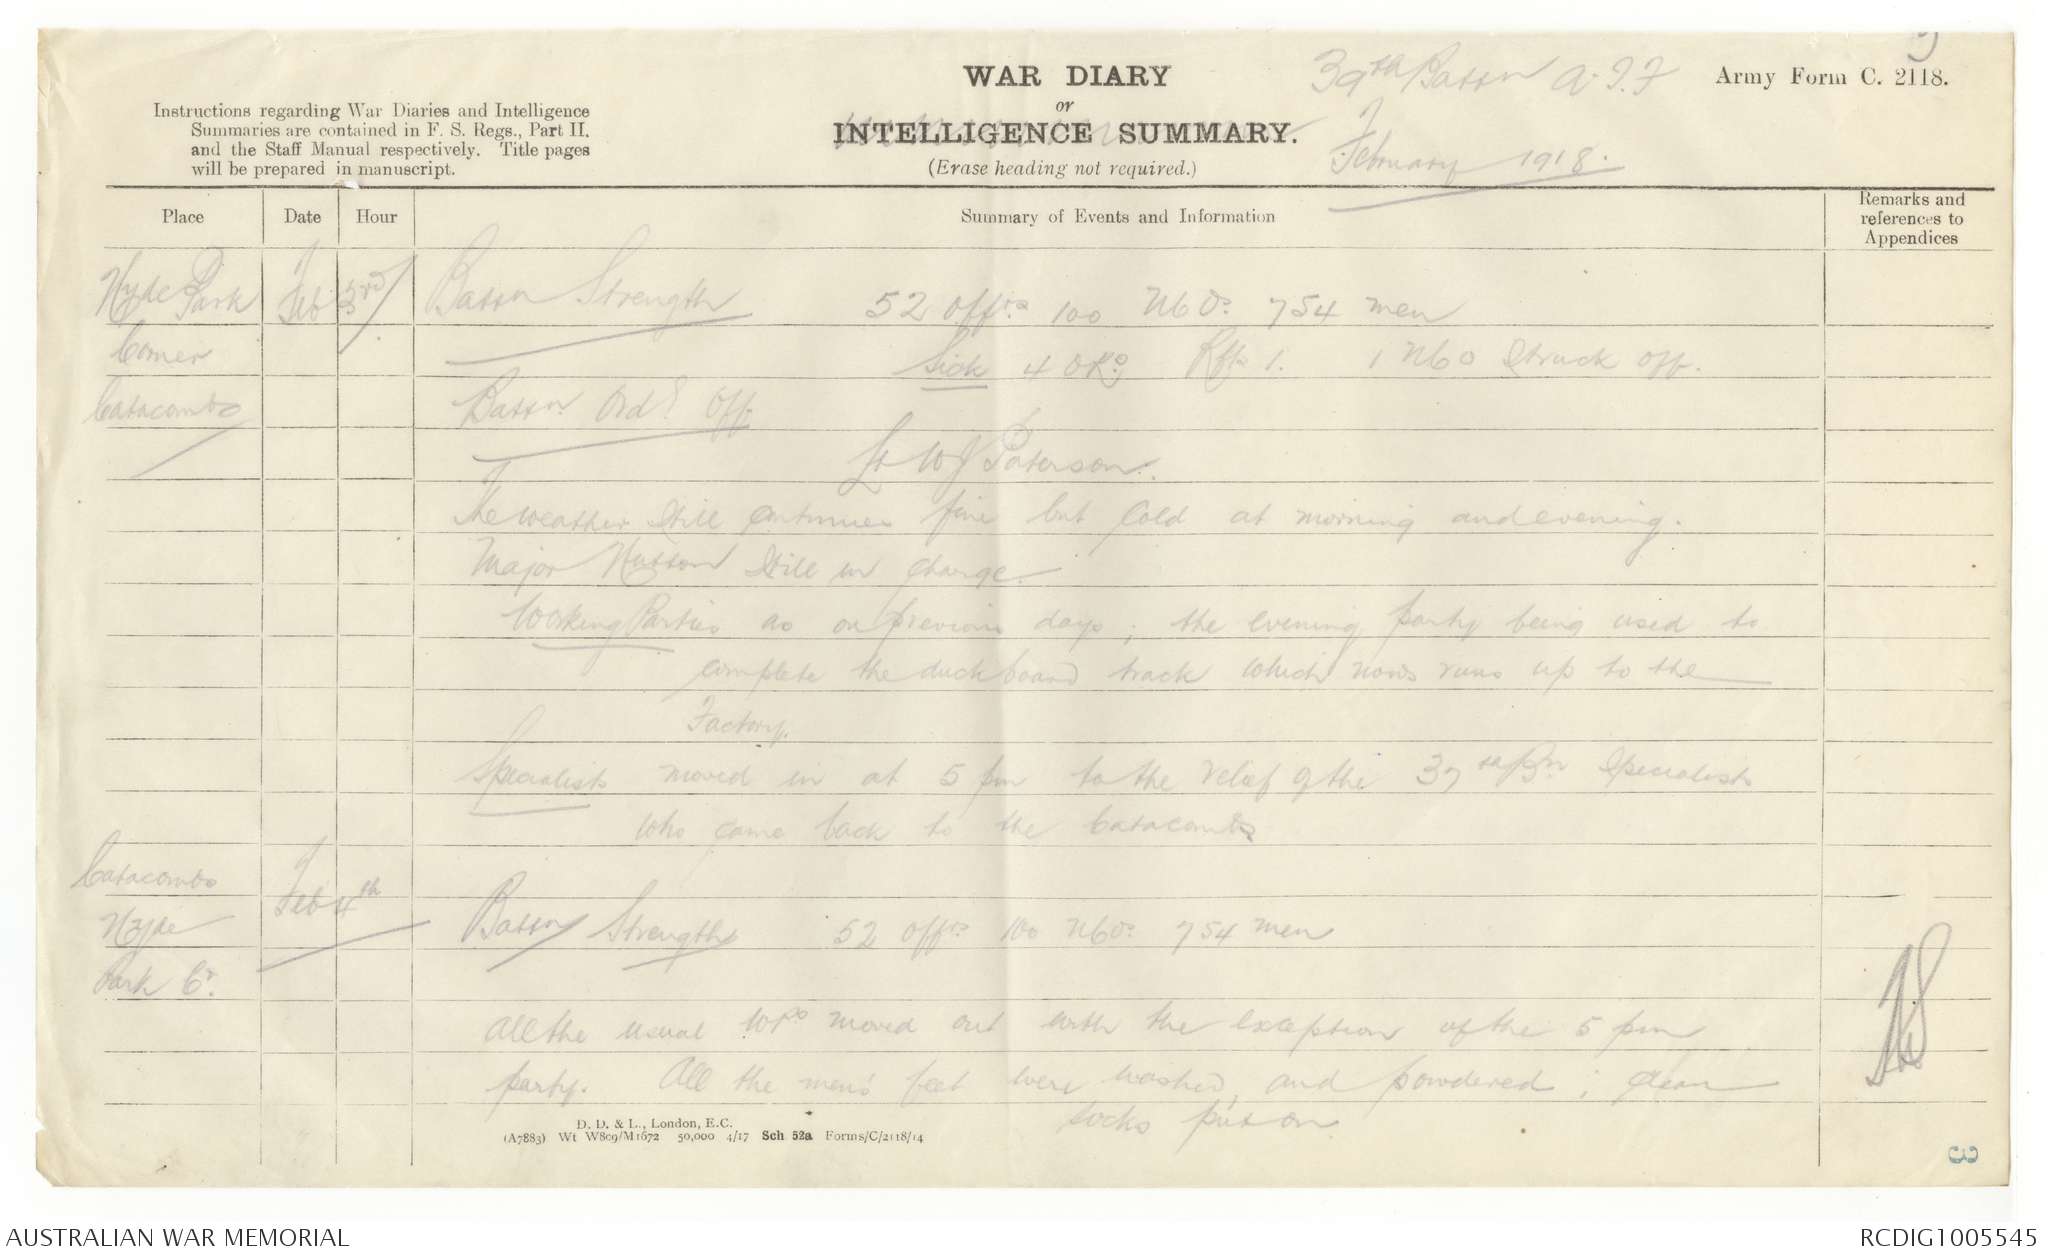 WAR DIARY
or
INTELLIGENCE SUMMARY.
(Erase heading not required.)
39th Battn A.I.F
February 1918.
Army Form C. 2118.
Instructions regarding War Diaries and Intelligence
Summaries are contained in F. S. Regs., Part II.
and the Staff Manual respectively. Title pages
will be prepared in manuscript.
Place Date Hour Summary of Events and Information Remarks and references to Appendices
Hyde Park Feb 3rd Battn Strength 52 Offrs 100 NCOs 754 men
Corner Sick 4 ORs Rft 1. 1 NCO Struck off.
Catacombs Battn Ord Off
Lt W J Paterson.
The weather still continues fine but cold at morning and evening.
Major Hutson still in charge
Working Parties as on previous days; the evening party being used to
complete the duckboard track which now runs up to the
Factory.
Specialists moved in at 5 pm to the relief of the 37th Bn Specialists
who came back to the Catacombs
Catacombs
Hyde Feb 4th Battn Strength 52 Offrs 100 NCOs 754 men
Park Cr.
All the usual WPs moved out with the exception of the 5 pm
party. All the men's feet were washed and powdered; clean
socks put on.
D. D. & L., London, E.C.
(A7883) Wt W809/M1672 50,000 4/17 Sch 52a Forms/C/2118/14
3
AUSTRALIAN WAR MEMORIAL
RCDIG1005545